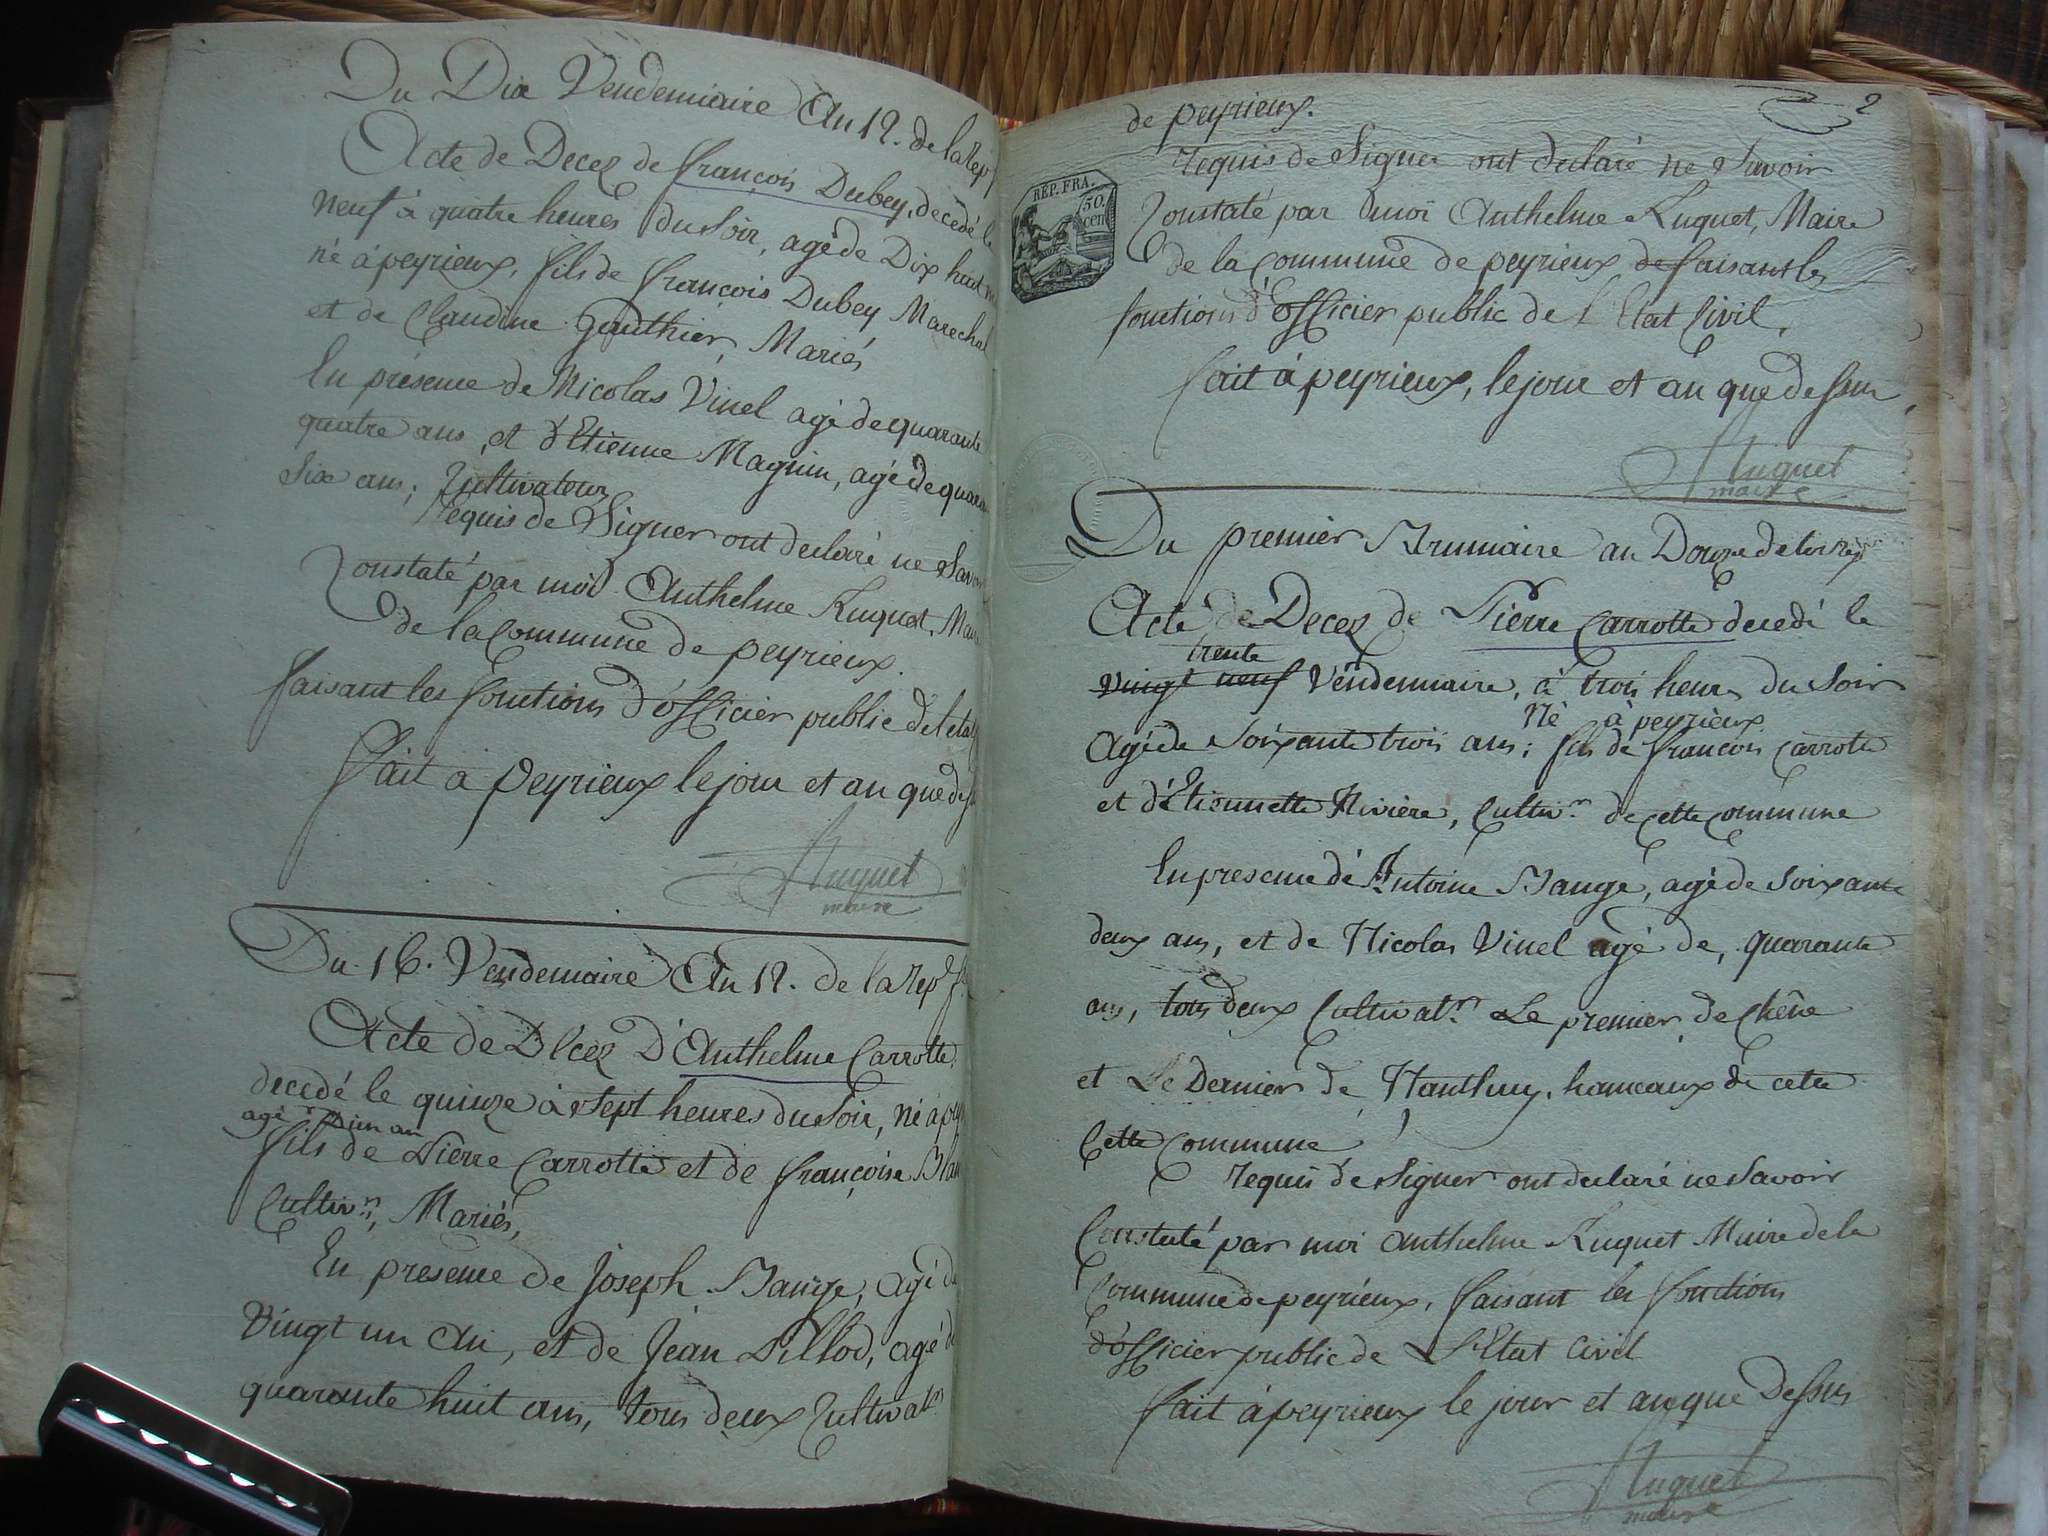 Du Dix Vendemiaire An 12. de la Rep
Acte de Decez de françois Dubey, decédé le
neuf à quatre heures du soir, agé de Dix huit
né à peyrieux, fils de françois Dubey Marechal
et de Claudine Gauthier, Mariés
En présence de Nicolas Vinel agé de quarante
quatre ans, et d'Etienne Magnin, agé de quaran
six ans, Cultivateurs
Requis de Signer ont declaré ne Savoir
Constaté par moi Anthelme Luquet, Maire
de la Commune de peyrieux.
faisant les fonctions d'officier public de l'etat
fait a Peyrieux le jour et an que dess
Luquet
maire
Du 16. Vendemiaire An 12. de la Rep f
Acte de Decez D'Anthelme Carrotte
decedé le quinze à Sept heures du Soir, né à pey
agé D'un an
fils de Pierre Carrotte et de françoise Blan
Cultivrs, Mariés,
En présence de Joseph Bauge, agé de
Vingt un An, et de Jean Pillod, agé de
quarante huit ans, tous deux Cultivatrs
2
de peyrieux.
Requis de Signer ont declaré ne Savoir
REP. FRA.
50 cen
Constaté par moi Anthelme Luquet, Maire
de la Commune de peyrieux de faisant les
fonctions d'officier public de l'Etat Civil,
fait à peyrieux, le jour et an que dessus,
Luquet
maire
Du premier Brumaire an Douze de la Rep
Acte de Decez de Pierre Carrotte decedé le
trente
vingt neuf Vendemiaire, à trois heures du Soir
Né à peyrieux
Agé de Soixante trois ans; fils de francois Carrotte
et d'Etionnette Riviere, Cultivr de cette commune
En presence de Antoine Bauge, agé de Soixante
deux ans, et de Nicolas Vinel agé de, quarante
ans, tous deux Cultivatrs Le premier de Chêne
et Le Dernier de Nanthuy, hameaux de cette
Cette commune
Requis de Signer ont declaré ne Savoir
Constaté par moi anthelme Luquet Maire de la
Commune de peyrieux, faisant les fonctions
d'officier public de L'Etat Civil
fait à peyrieux le jour et an que Dessus
Luquet
maire